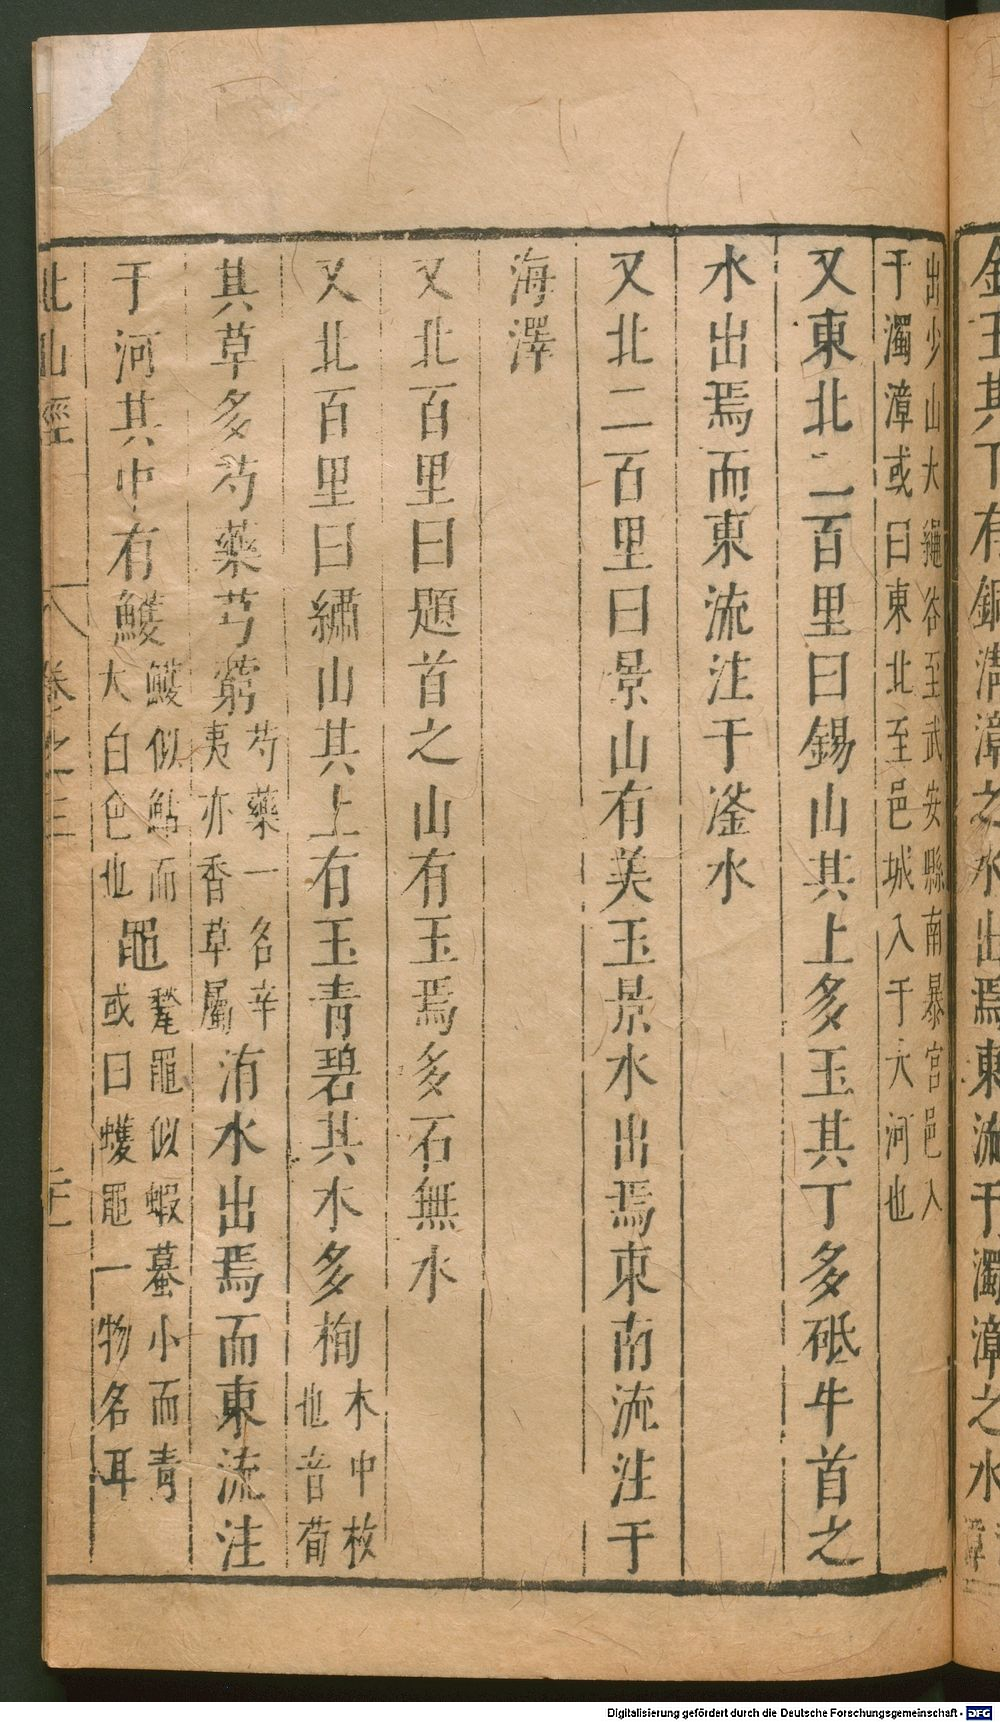 金玉其下有銅清漳之水出焉東流于濁漳之水
出少山大繩谷至武安縣南暴宮邑入
于濁漳或曰東北至邑城入于大河也
又東北二百里曰錫山其上多玉其丁多砥牛首之
水出焉而東流注于滏水
又北二百里曰景山有美玉景水出焉東南流注于
海澤
又北百里曰題首之山有玉焉多石無水
又北百里曰繡山其上有玉青碧其木多栒
木中枚
也音荀
其草多芍藥芎藭
芍藥一名辛
夷亦香草屬
洧水出焉而東流注
于河其中有鱯
鱯似鮎而
大白色也
黽
鼁黽似蝦蟇小而青
或曰蠖黽一物名耳
北山經
卷之三
二十一
Digitalisierung gefördert durch die Deutsche Forschungsgemeinschaft - DFG